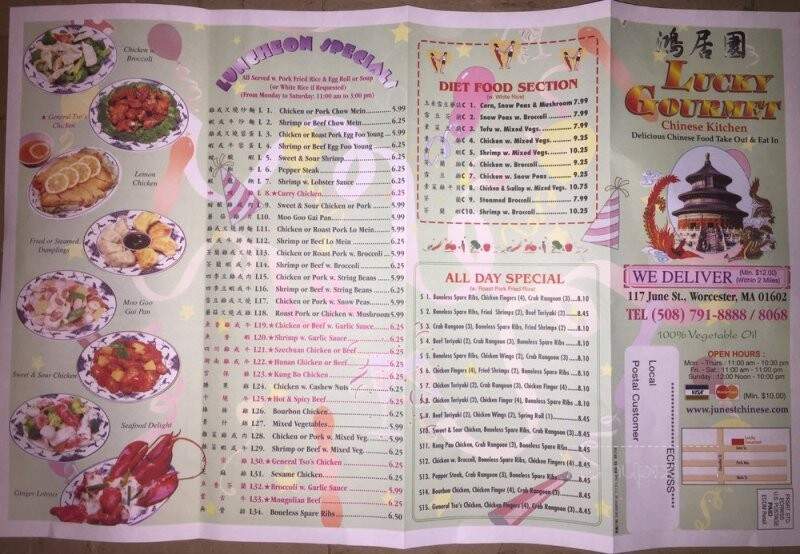 Chicken w.
Broccoli
★ General Tso's
Chicken
Lemon
Chicken
Fried or Steamed
Dumplings
Moo Goo
Gai Pan
Sweet & Sour Chicken
Seafood Delight
Ginger Lobster
LUNCHEON SPECIALS
All Served w. Pork Fried Rice & Egg Roll or Soup
(or White Rice if Requested)
(From Monday to Saturday: 11:00 am to 3:00 pm)
L 1. Chicken or Pork Chow Mein 5.99
L 2. Shrimp or Beef Chow Mein 6.25
L 3. Chicken or Roast Pork Egg Foo Young 5.99
L 4. Shrimp or Beef Egg Foo Young 6.25
L 5. Sweet & Sour Shrimp 6.25
L 6. Pepper Steak 6.25
L 7. Shrimp w. Lobster Sauce 6.25
L 8.★Curry Chicken 6.25
L 9. Sweet & Sour Chicken or Pork 5.99
L10. Moo Goo Gai Pan 5.99
L11. Chicken or Roast Pork Lo Mein 5.99
L12. Shrimp or Beef Lo Mein 6.25
L13. Chicken or Roast Pork w. Broccoli 5.99
L14. Shrimp or Beef w. Broccoli 6.25
L15. Chicken or Pork w. String Beans 5.99
L16. Shrimp or Beef w. String Beans 6.25
L17. Chicken or Pork w. Snow Peas 5.99
L18. Roast Pork or Chicken w. Mushroom 5.99
L19.★Chicken or Beef w. Garlic Sauce 6.25
L20.★Shrimp w. Garlic Sauce 6.25
L21.★Szechuan Chicken or Beef 6.25
L22.★Hunan Chicken or Beef 6.25
L23.★Kung Bo Chicken 6.25
L24. Chicken w. Cashew Nuts 6.25
L25.★Hot & Spicy Beef 6.25
L26. Bourbon Chicken 6.25
L27. Mixed Vegetables 5.99
L28. Chicken or Pork w. Mixed Veg. 5.99
L29. Shrimp or Beef w. Mixed Veg. 6.25
L30.★General Tso's Chicken 6.25
L31. Sesame Chicken 6.25
L32.★Broccoli w. Garlic Sauce 5.99
L33.★Mongolian Beef 6.25
L34. Boneless Spare Ribs 6.50
DIET FOOD SECTION
(w. White Rice)
C 1. Corn, Snow Peas & Mushroom 7.99
C 2. Snow Peas w. Broccoli 7.99
C 3. Tofu w. Mixed Vegs. 7.99
C 4. Chicken w. Mixed Vegs. 9.25
C 5. Shrimp w. Mixed Vegs. 10.25
C 6. Chicken w. Broccoli 9.25
C 7. Chicken w. Snow Peas 9.25
C 8. Chicken & Scallop w. Mixed Vegs. 10.75
C 9. Steamed Broccoli 7.99
C10. Shrimp w. Broccoli 10.25
ALL DAY SPECIAL
(w. Roast Pork Fried Rice)
S 1. Boneless Spare Ribs, Chicken Fingers (4), Crab Rangoon (3) 8.10
S 2. Boneless Spare Ribs, Fried Shrimps (2), Beef Teriyaki (2) 8.45
S 3. Crab Rangoon (3), Boneless Spare Ribs, Fried Shrimps (2) 8.10
S 4. Beef Teriyaki (2), Crab Rangoon (3), Boneless Spare Ribs 8.10
S 5. Boneless Spare Ribs, Chicken Wings (2), Crab Rangoon (3) 8.10
S 6. Chicken Fingers (4), Fried Shrimps (2), Boneless Spare Ribs 8.10
S 7. Chicken Teriyaki (2), Crab Rangoon (3), Chicken Finger (4) 8.10
S 8. Chicken Teriyaki (2), Chicken Finger (4), Boneless Spare Ribs 8.45
S 9. Beef Teriyaki (2), Chicken Wings (2), Spring Roll (1) 8.45
S10. Sweet & Sour Chicken, Boneless Spare Ribs, Crab Rangoon (3) 8.45
S11. Kung Pao Chicken, Crab Rangoon (3), Boneless Spare Ribs 8.45
S12. Chicken w. Broccoli, Boneless Spare Ribs, Chicken Fingers (4) 8.45
S13. Pepper Steak, Crab Rangoon (3), Boneless Spare Ribs 8.45
S14. Bourbon Chicken, Chicken Finger (4), Crab Rangoon (3) 8.45
S15. General Tso's Chicken, Chicken Fingers (4), Crab Rangoon (3) 8.45
鴻居園
LUCKY
GOURMET
Chinese Kitchen
Delicious Chinese Food Take Out & Eat In
WE DELIVER (Min. $12.00)
(Within 2 Miles)
117 June St., Worcester, MA 01602
TEL (508) 791-8888 / 8068
100% Vegetable Oil
OPEN HOURS :
Mon. - Thurs. : 11:00 am - 10:30 pm
Fri. - Sat. : 11:00 am - 11:00 pm
Sunday : 12:00 Noon - 10:00 pm
VISA MasterCard (Min. $10.00)
www.junestchinese.com
Local
Postal Customer
****ECRWSS****
PRSRT STD
ECRWSS
U.S. POSTAGE
PAID
EDDM Retail